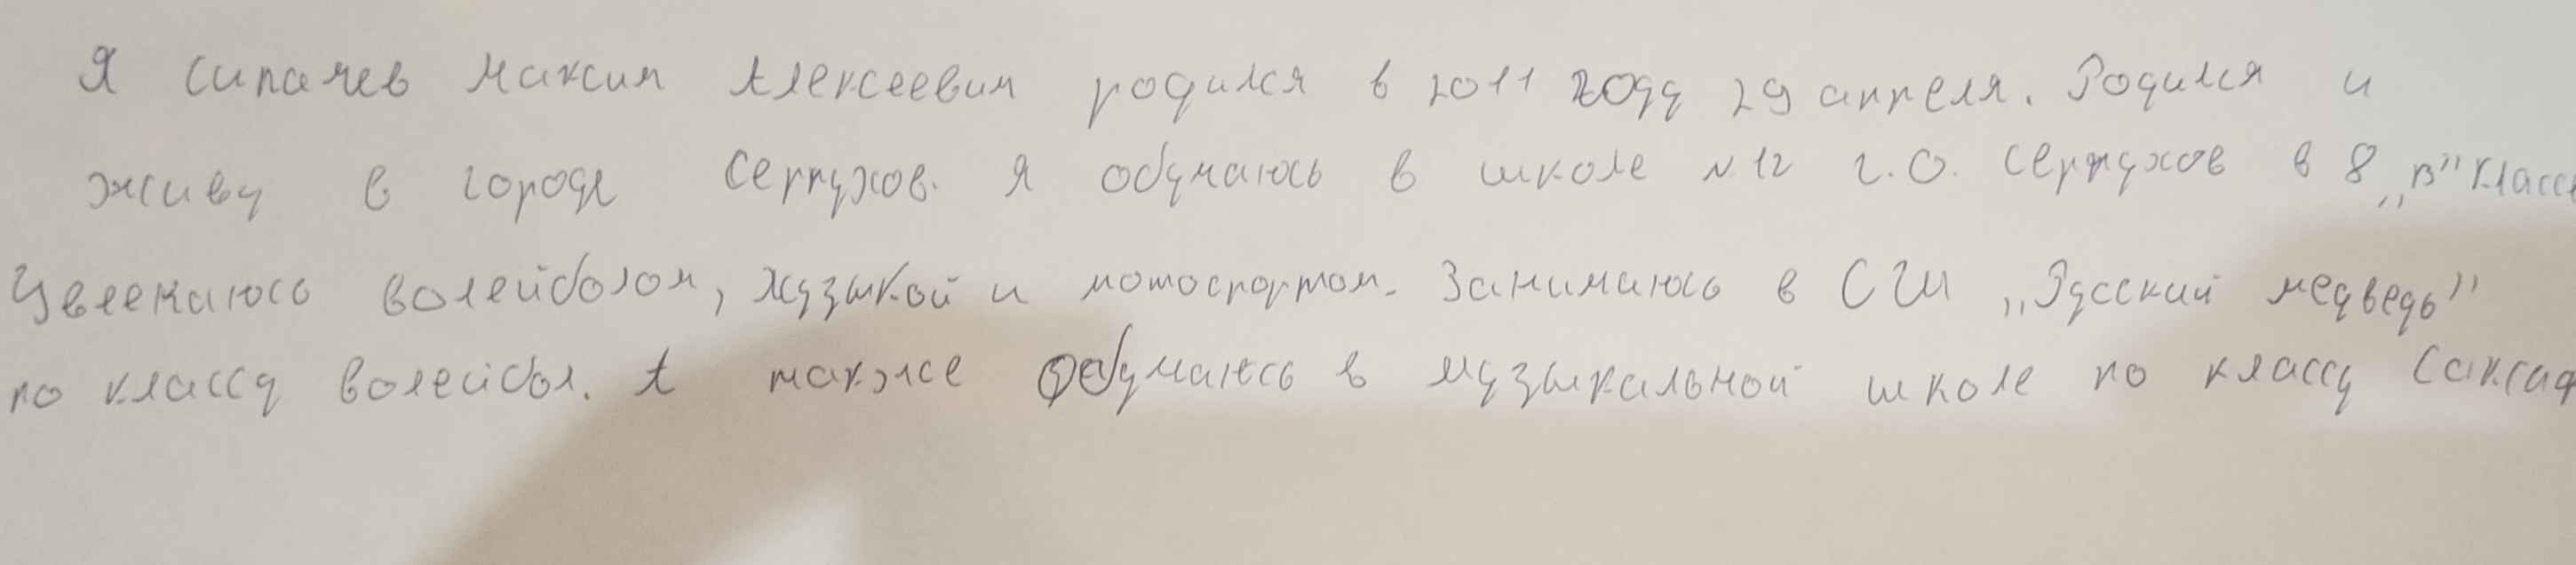 Я Сипачев Максим Алексеевич родился в 2011 году 29 апреля. Родился и
живу в городе Серпухов. Я обучаюсь в школе №12 г.о. Серпухов в 8 „В" класс
Увлекаюсь волейболом, музыкой и мотоспортом. Занимаюсь в СШ „Русский медведь"
по классу волейбол. А также обучаюсь в музыкальной школе по классу Саксаф